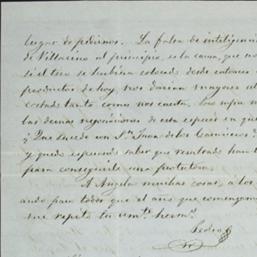 lugar de pedirnos. La falta de inteligencia
de Villarino al principio, es la causa, que no
si el tren se hubiera colocado desde entonces
productos de hoy, nos darian mayores
costado tanto como nos cuesta. Los
las demas negociaciones de esta especie en que
¿Que sucede con Sn. Juan de los Carnicero
y quedo esperando saber que resultado han
para conseguirte una protutora.
A Angela muchas cosas, a los
ando para todos que el año que comenzamos
me repito tu amº hermº.
Pedro